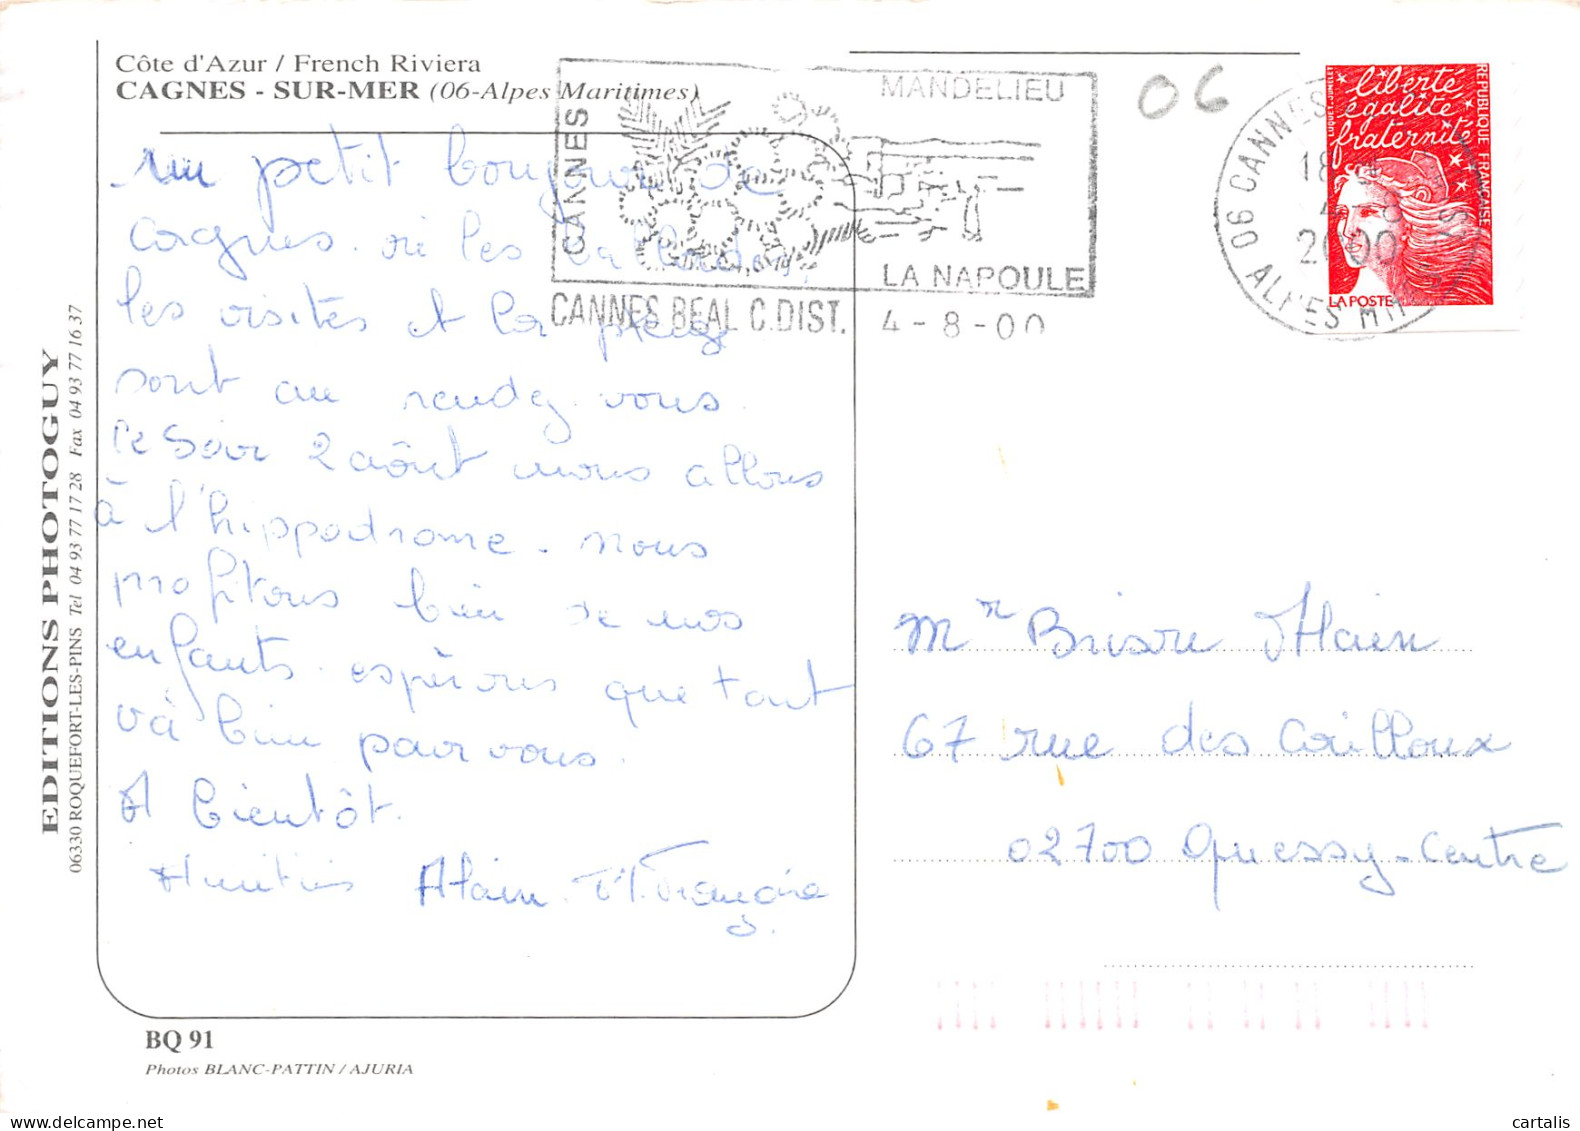 Côte d'Azur / French Riviera
CAGNES - SUR-MER (06-Alpes Maritimes)
un petit bonjour de
Cagnes. où les ballades,
les visites et la plage
sont au rendez-vous.
ce soir 2 août nous allons
à l'hippodrome. nous
profitons bien de nos
enfants. espérons que tout
và bien pour vous.
A bientôt.
Amitiés Alain.
BQ 91
Photos BLANC-PATTIN / AJURIA
EDITIONS PHOTOGUY
06330 ROQUEFORT-LES-PINS Tel 04 93 77 17 28 Fax 04 93 77 16 37
CANNES
MANDELIEU
LA NAPOULE
CANNES BEAL C.DIST. 4-8-00
06
06 CANNES
18
4 8
2000
ALPES MM
liberté
égalité
fraternité
REPUBLIQUE FRANÇAISE
LA POSTE
Mr Alain
67 rue des Cailloux
02700 Quessy-Centre
cartalis